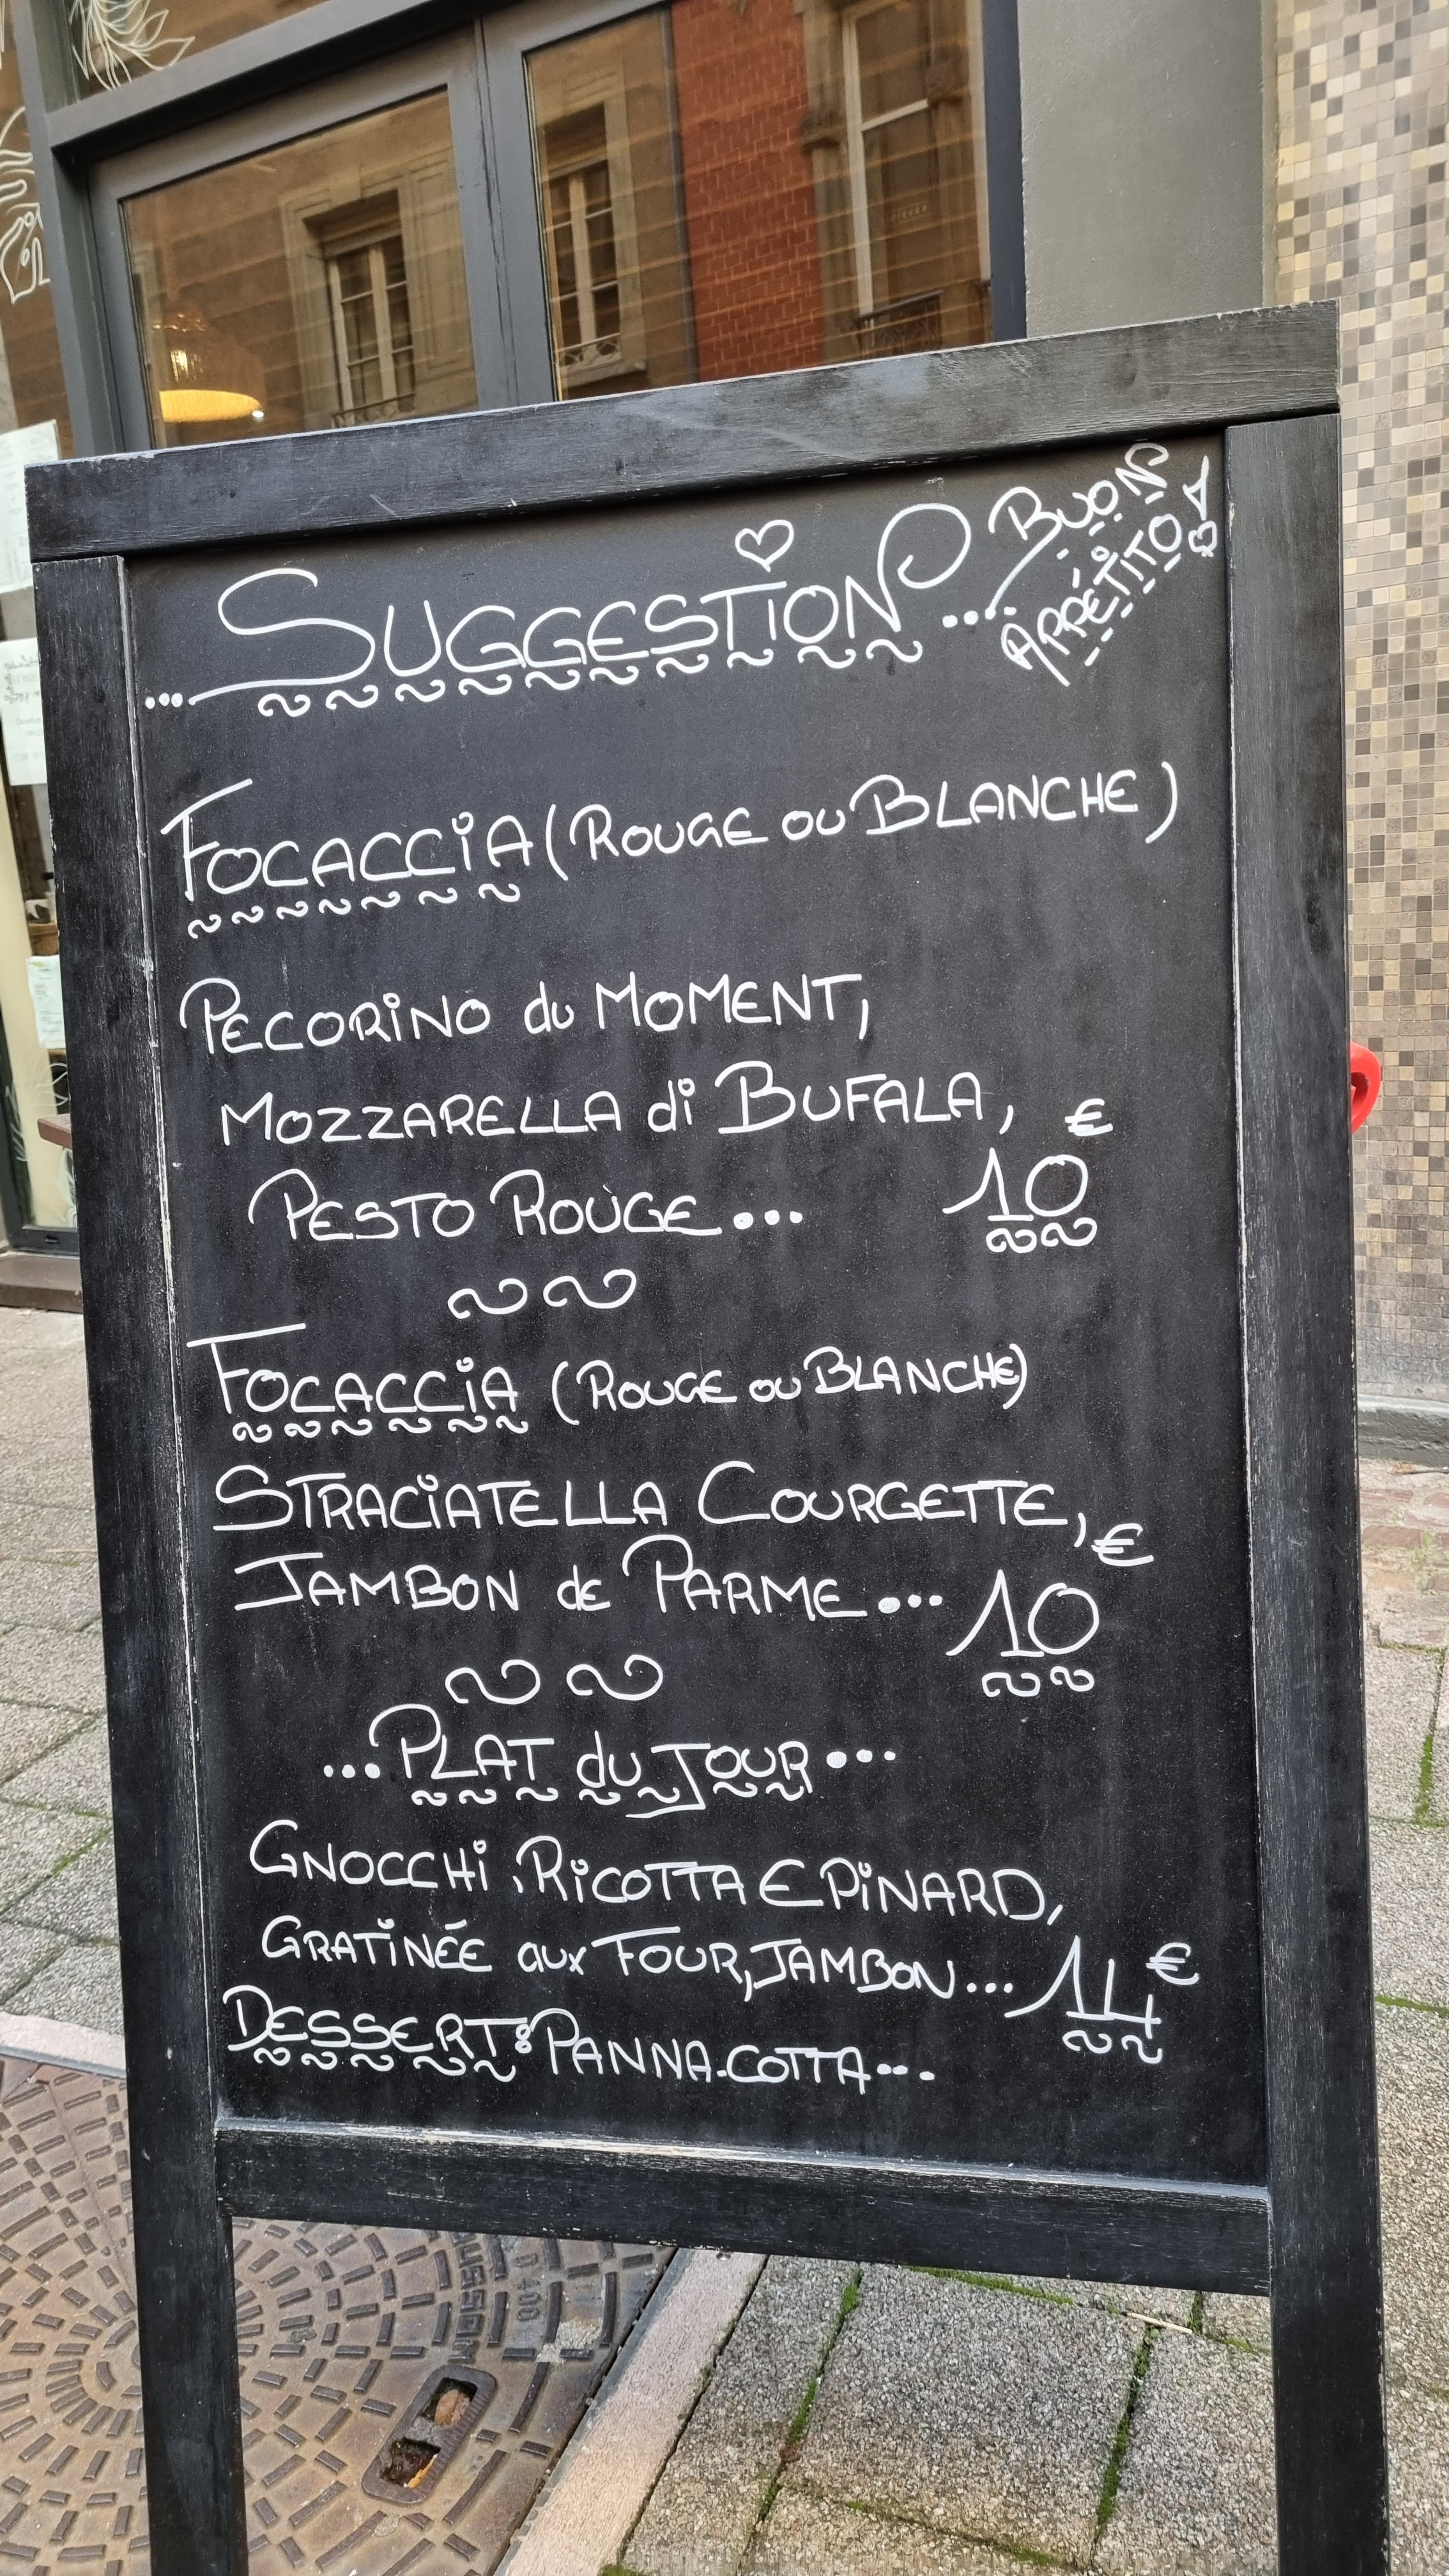 ...SUGGESTION....
BUON
APPÉTITO
FOCACCiA (ROUGE OU BLANCHE)
PECORiNO du MOMENT,
MOZZARELLA di BUFALA,
PESTO ROUGE... 10€
FOCACCiA (ROUGE ou BLANCHE)
STRACiATELLA COURGETTE,
JAMBON de PARME... 10€
...PLAT du JOUR...
GNOCCHi, RiCOTTA EPiNARD,
GRATiNÉE aux FOUR, JAMBON... 14€
DESSERT: PANNA-COTTA...
D 400